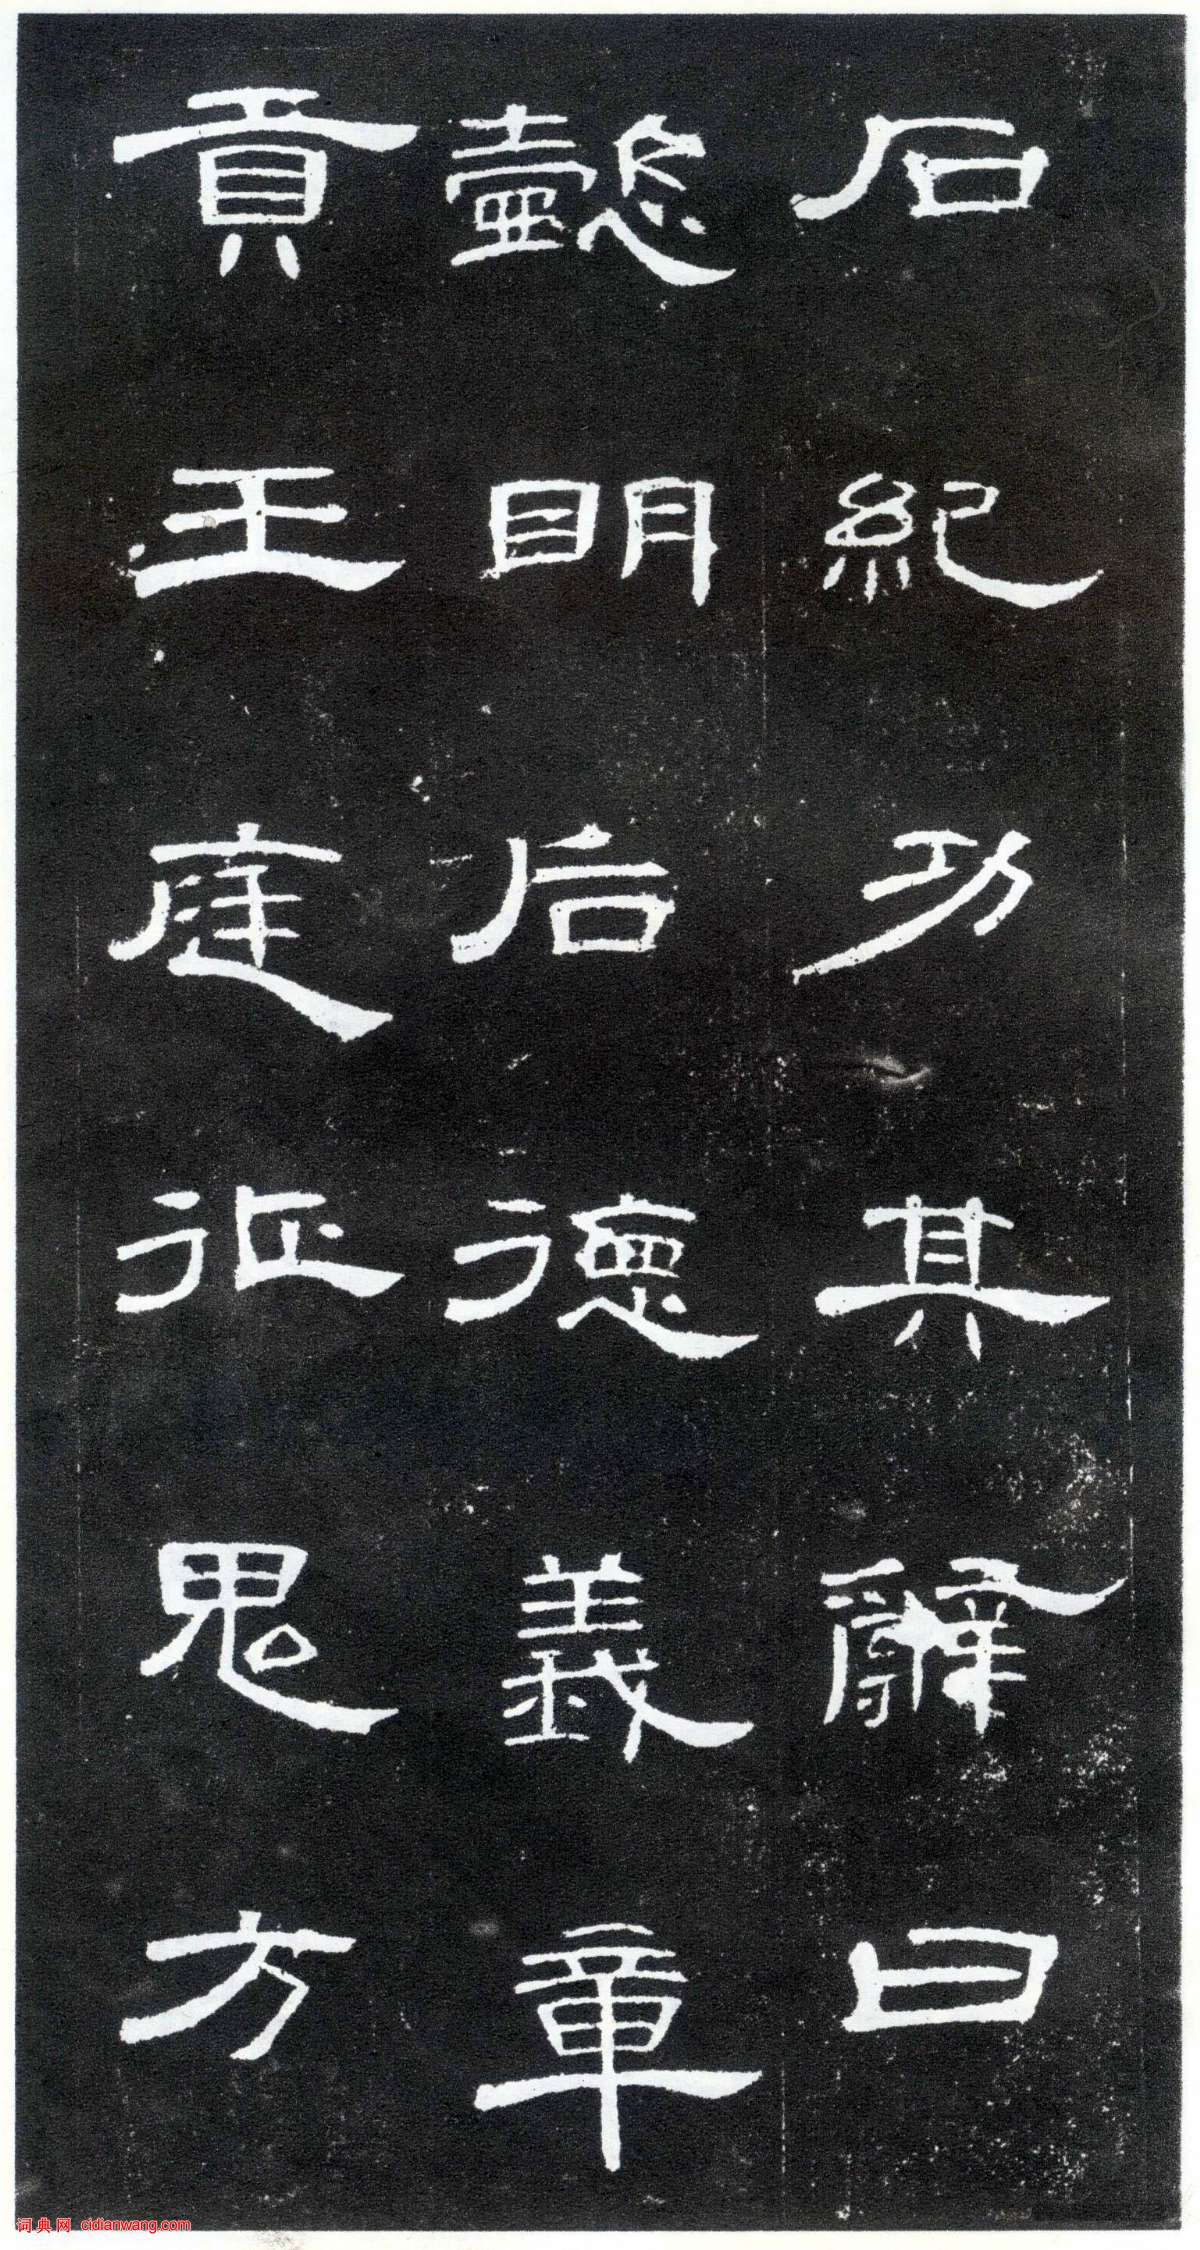 石紀功其辭曰
懿明后德義章
貢王庭征鬼方
词典网 cidianwang.com